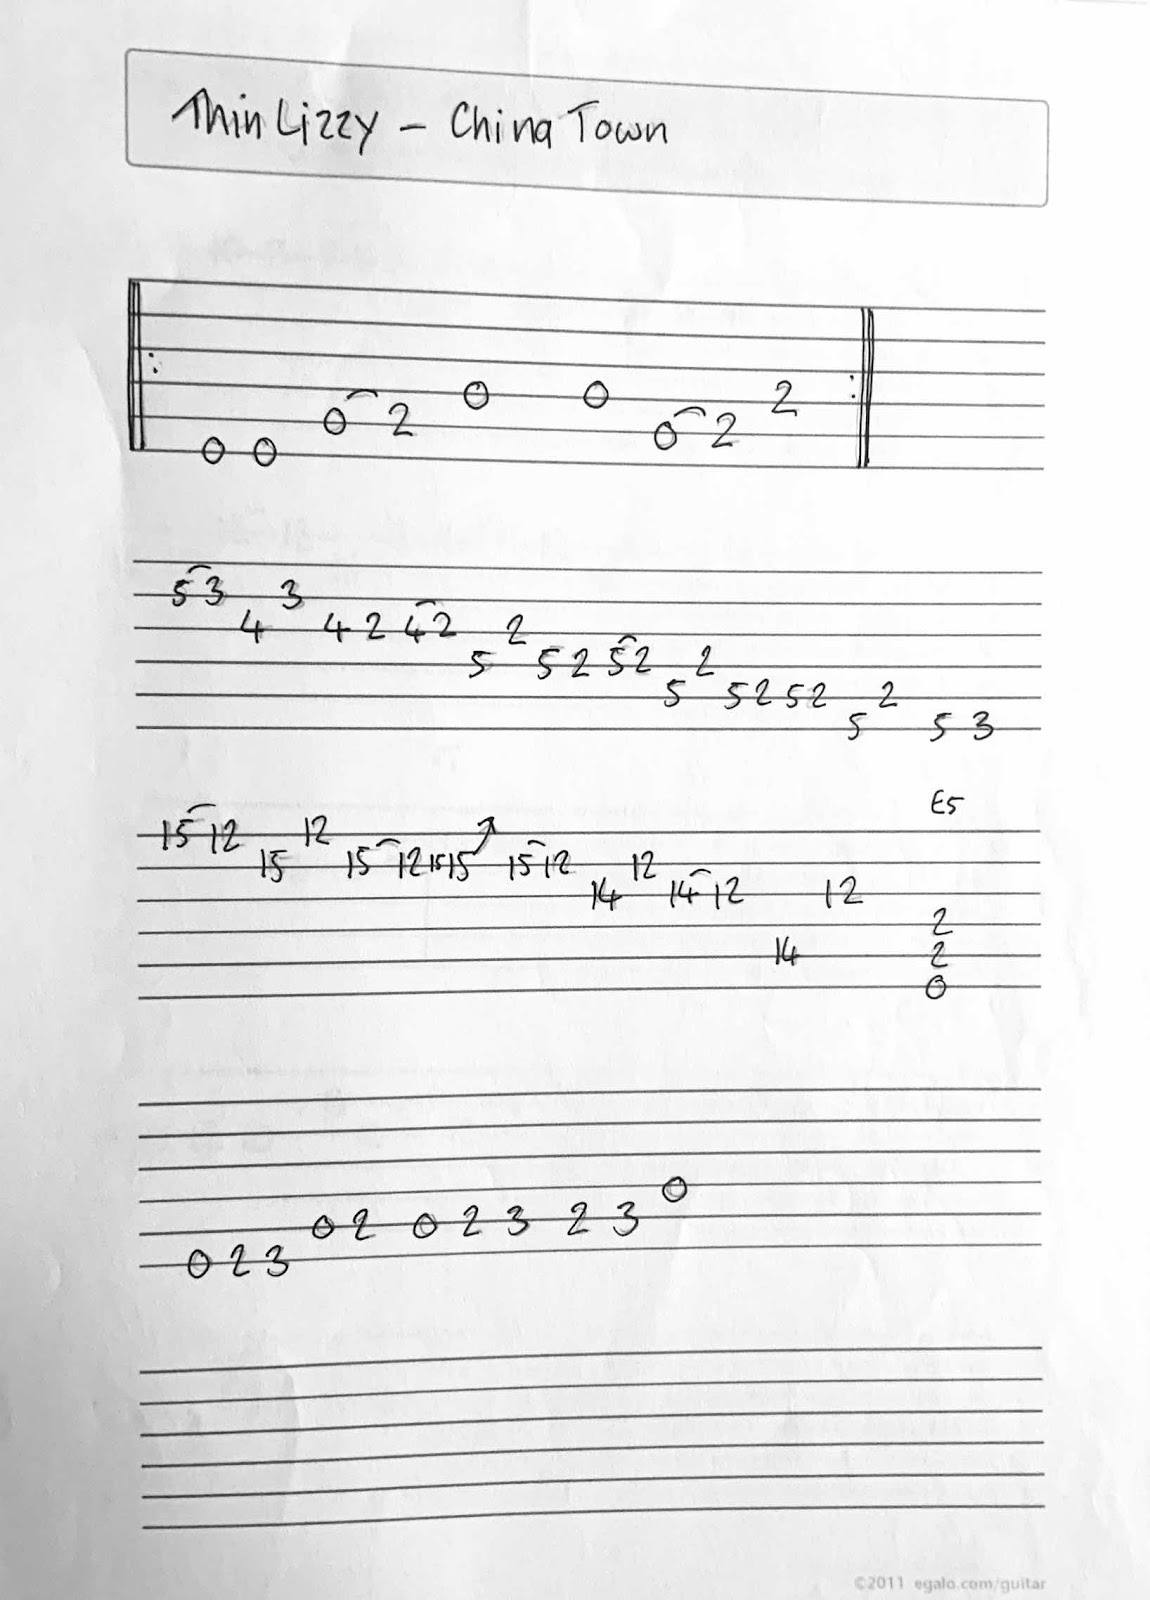 Thin Lizzy - China Town
0 0 0 2 0 0 0 2 2
5 3 4 3 4 2 4 2 5 2 5 2 5 2 5 2 5 2 5 2 5 2 5 3
E5
15 12 15 12 15 12 15 15 15 12 14 12 14 12 14 12 2
2
0
0 2 3 0 2 0 2 3 2 3 0
©2011 egalo.com/guitar